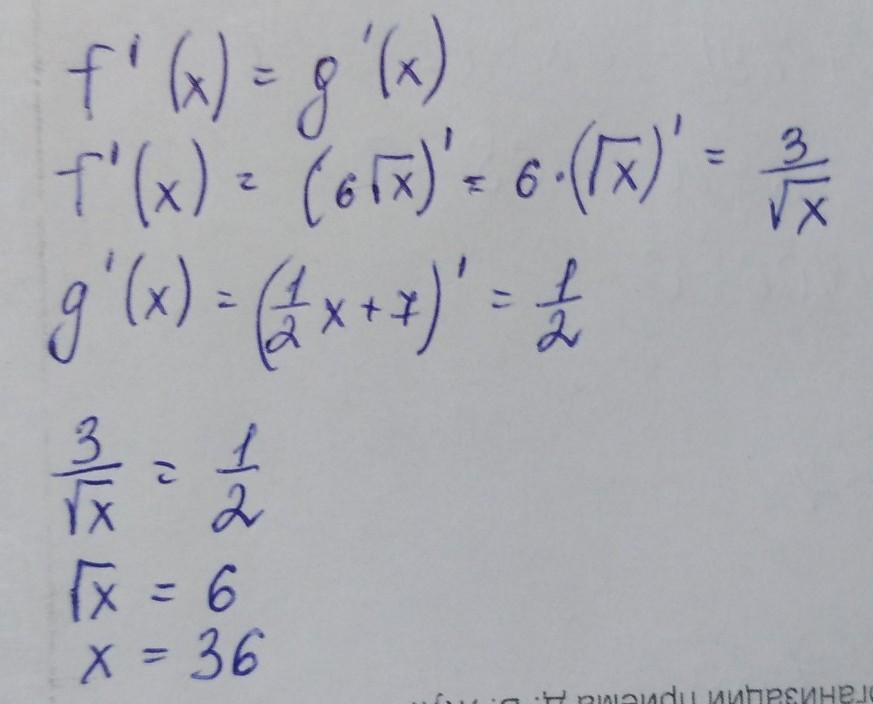 f'(x) = g'(x)
f'(x) = (6√x)' = 6·(√x)' = 3/√x
g'(x) = (1/2 x + 7)' = 1/2
3/√x = 1/2
√x = 6
x = 36
приема Д.